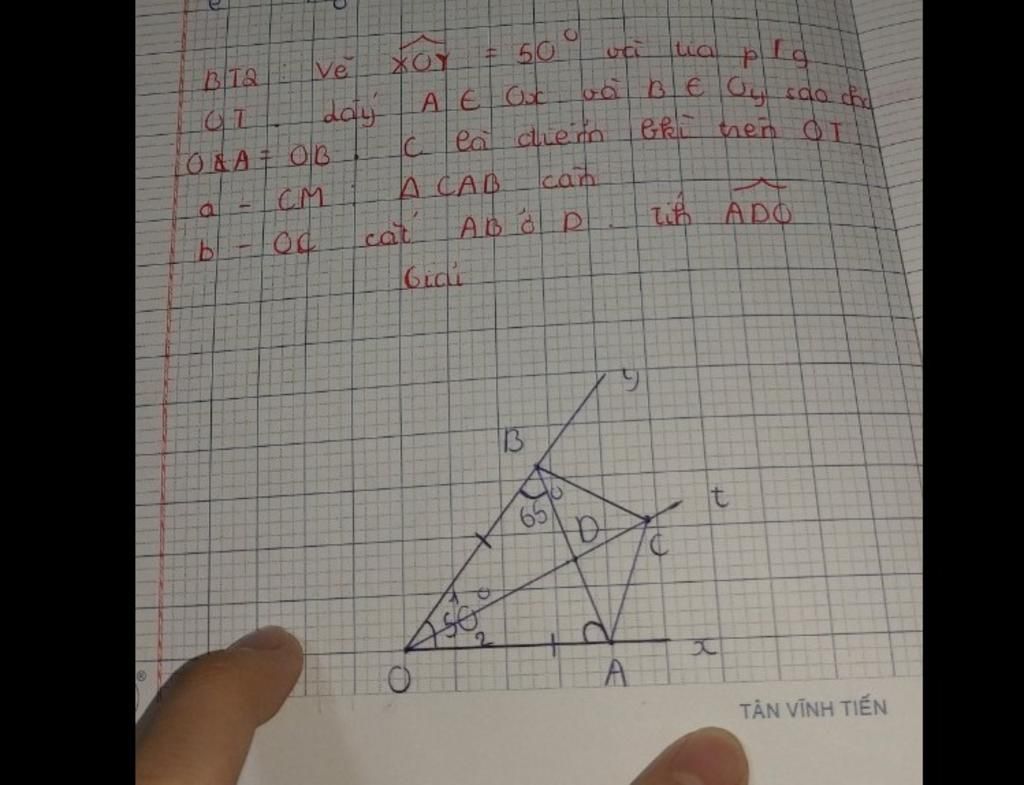 BT2: Vẽ xOy = 50° với tia p/g
OT. dấy A ∈ Ox và B ∈ Oy sao cho
OA = OB. C là điểm bkì trên OT
a - CM: Δ CAB cân
b - OC cắt AB ở D. Tính ADO
Giải
y
B
t
65°
D
C
1
50°
2
O
A
x
TÂN VĨNH TIẾN